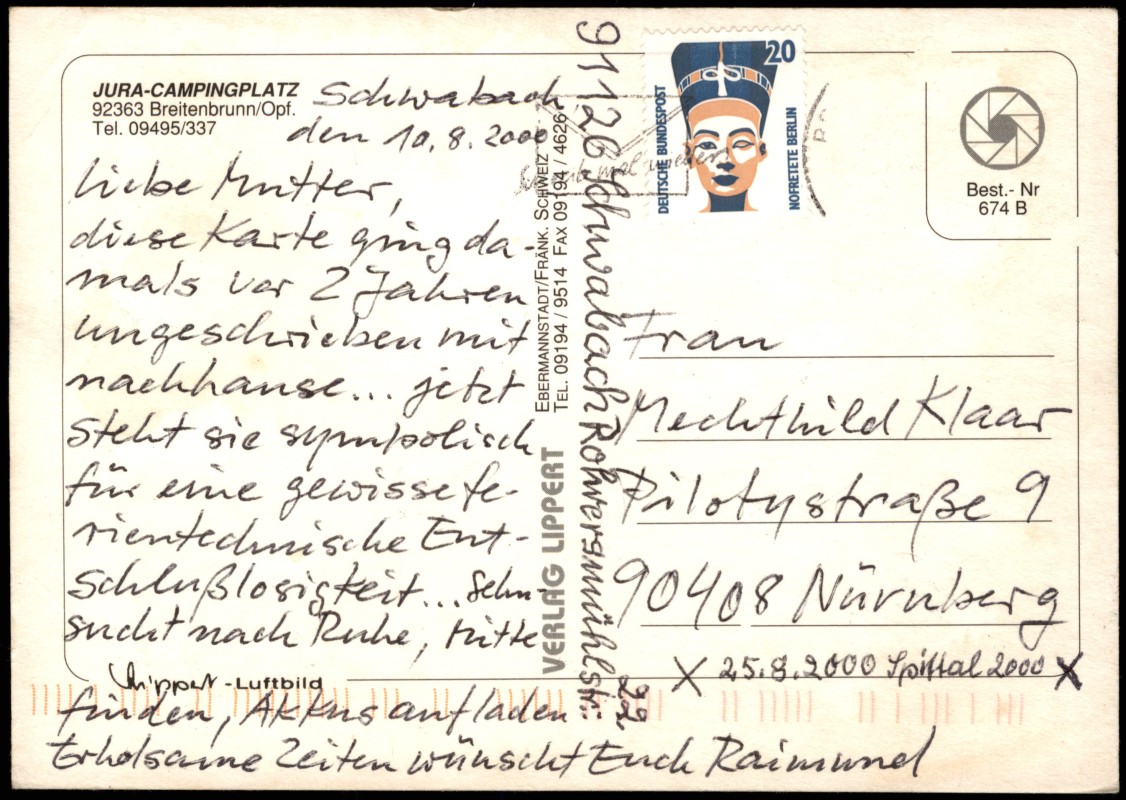 JURA-CAMPINGPLATZ
92363 Breitenbrunn/Opf.
Tel. 09495/337
Schwabach,
den 10.8.2000
Liebe Mutter,
diese Karte ging da-
mals vor 2 Jahren
ungeschrieben mit
nachhause... jetzt
steht sie symbolisch
für eine gewisse fe-
rientechnische Ent-
schlußlosigkeit... Sehn-
sucht nach Ruhe, Mitte
-Luftbild
finden, Akkus aufladen
Erholsame Zeiten wünscht Euch Raimund
VERLAG LIPPERT
EBERMANNSTADT/FRÄNK. SCHWEIZ
TEL. 09194 / 9514 FAX 09194 / 4626
91126 Schwabach Rohrersmühlstr.
22
20
DEUTSCHE BUNDESPOST
NOFRETETE BERLIN
Best.- Nr
674 B
Frau
Mechthild Klaar
Pilotystraße 9
90408 Nürnberg
X 25.8.2000 Spittal 2000 X